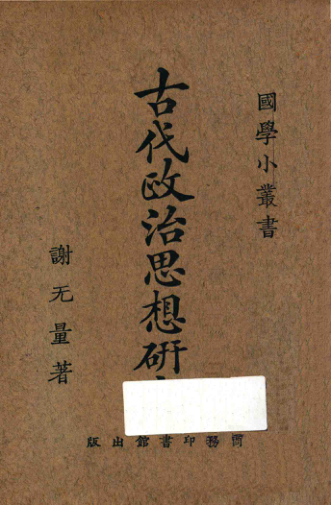 國學小叢書
古代政治思想研
謝无量著
商務印書館出版